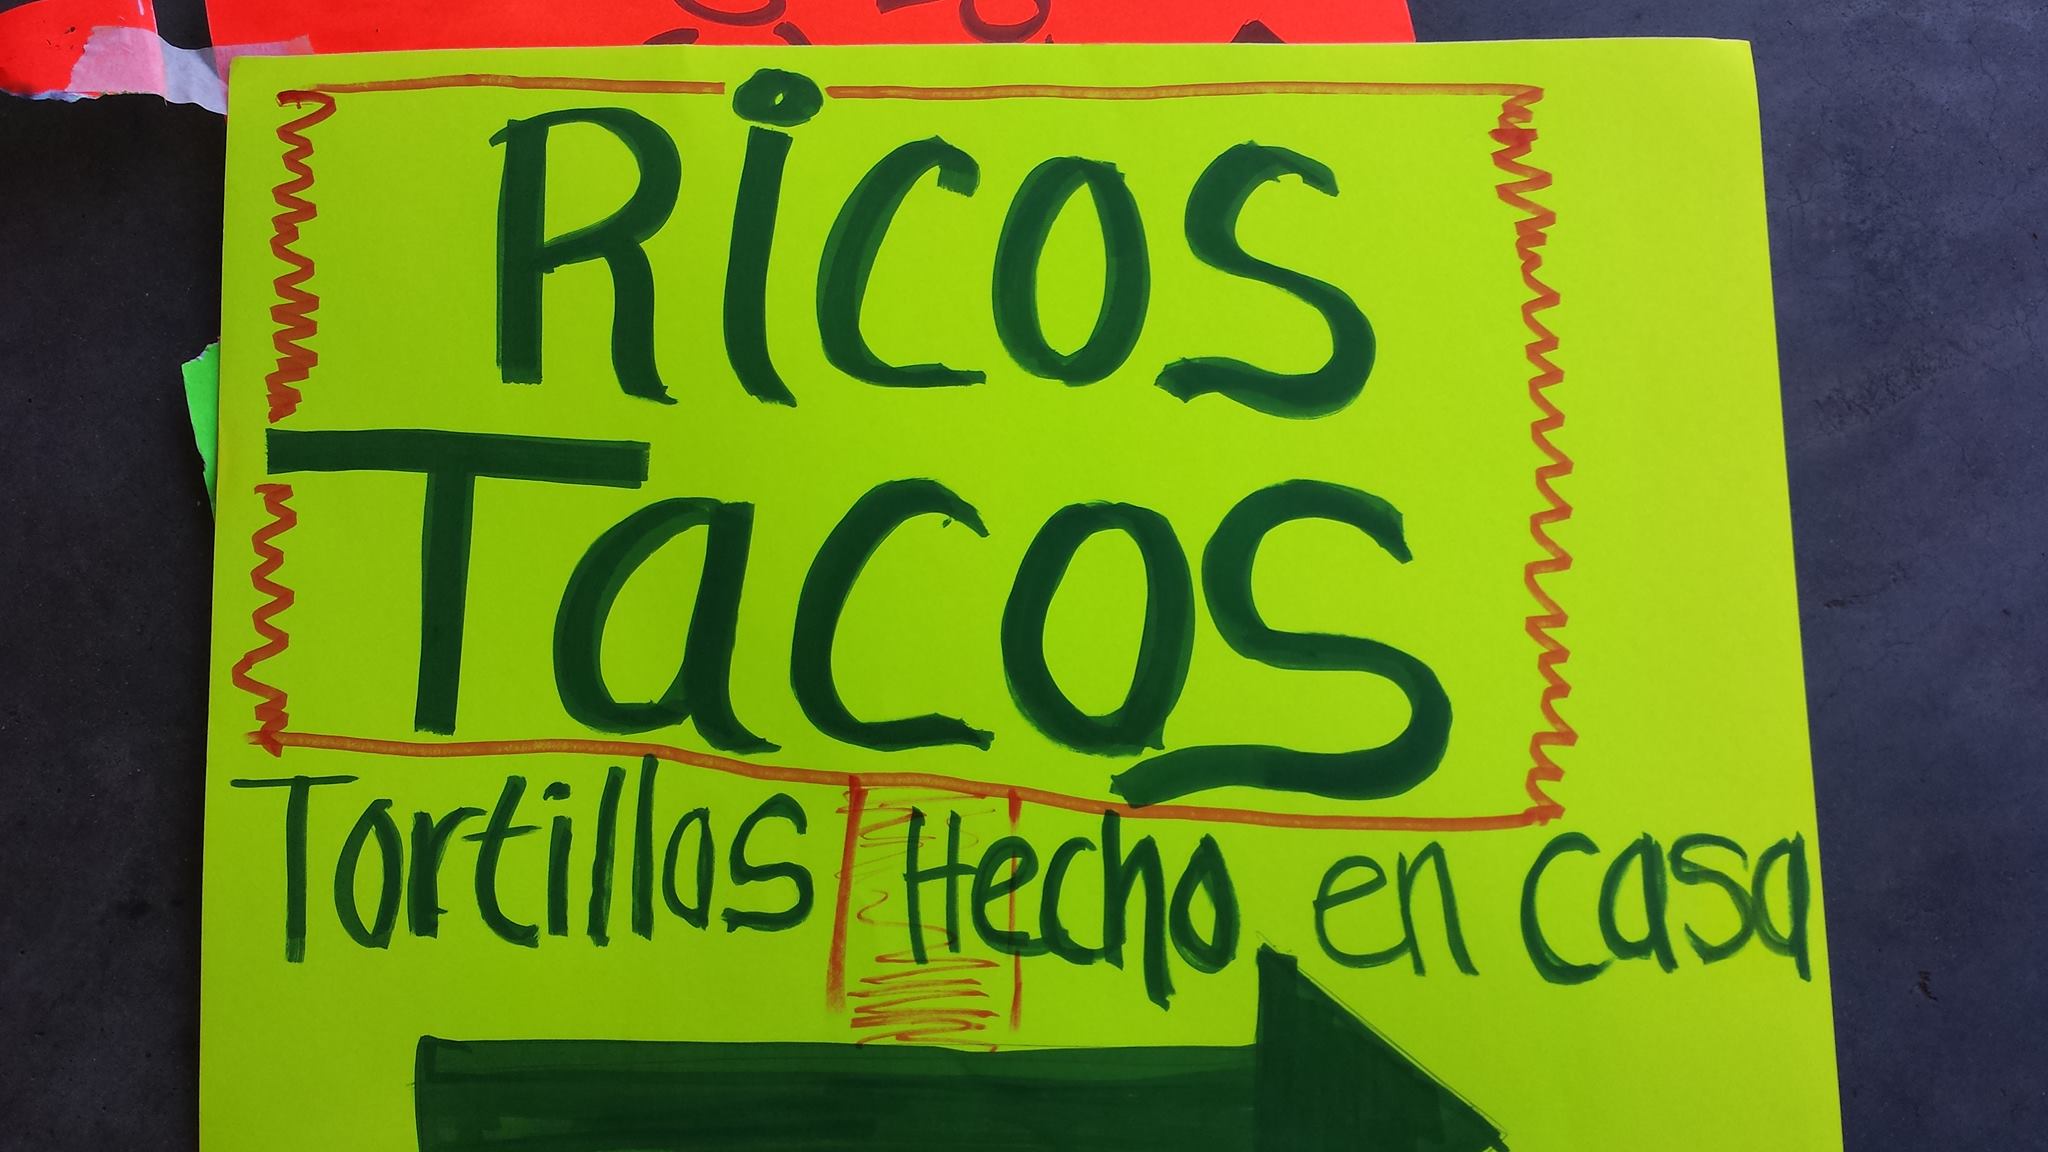 Ricos
Tacos
Tortillas Hecho en casa